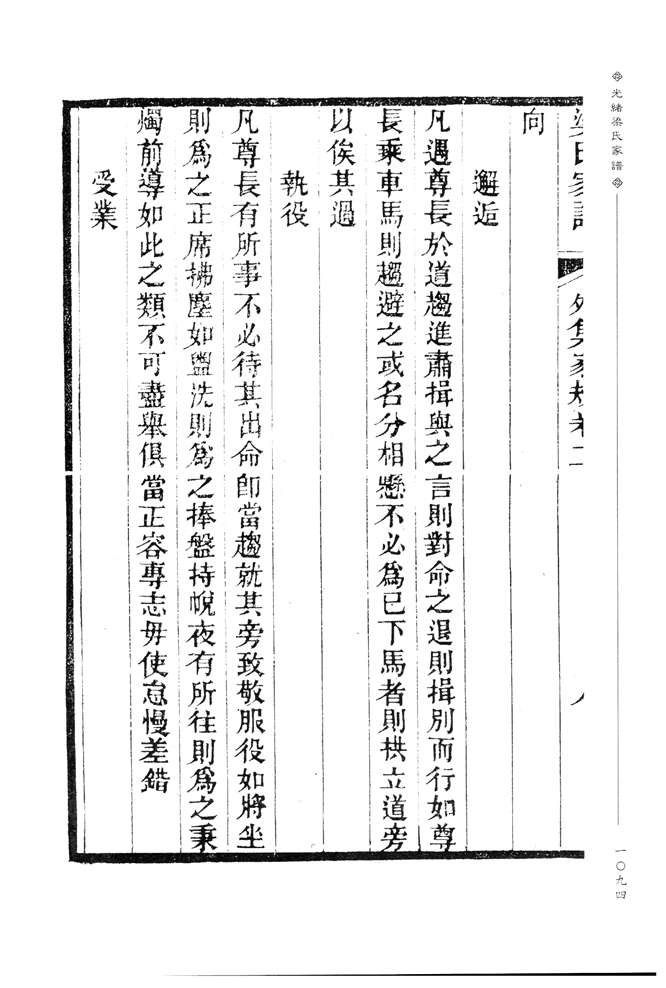 光緒梁氏家譜
一〇九四
梁氏家譜 外集家規卷二 八
向
邂逅
凡遇尊長於道趨進肅揖與之言則對命之退則揖別而行如尊
長乘車馬則趨避之或名分相懸不必為已下馬者則拱立道旁
以俟其過
執役
凡尊長有所事不必待其出命即當趨就其旁致敬服役如將坐
則為之正席拂塵如盥洗則為之捧盤持帨夜有所往則為之秉
燭前導如此之類不可盡舉俱當正容專志毋使怠慢差錯
受業